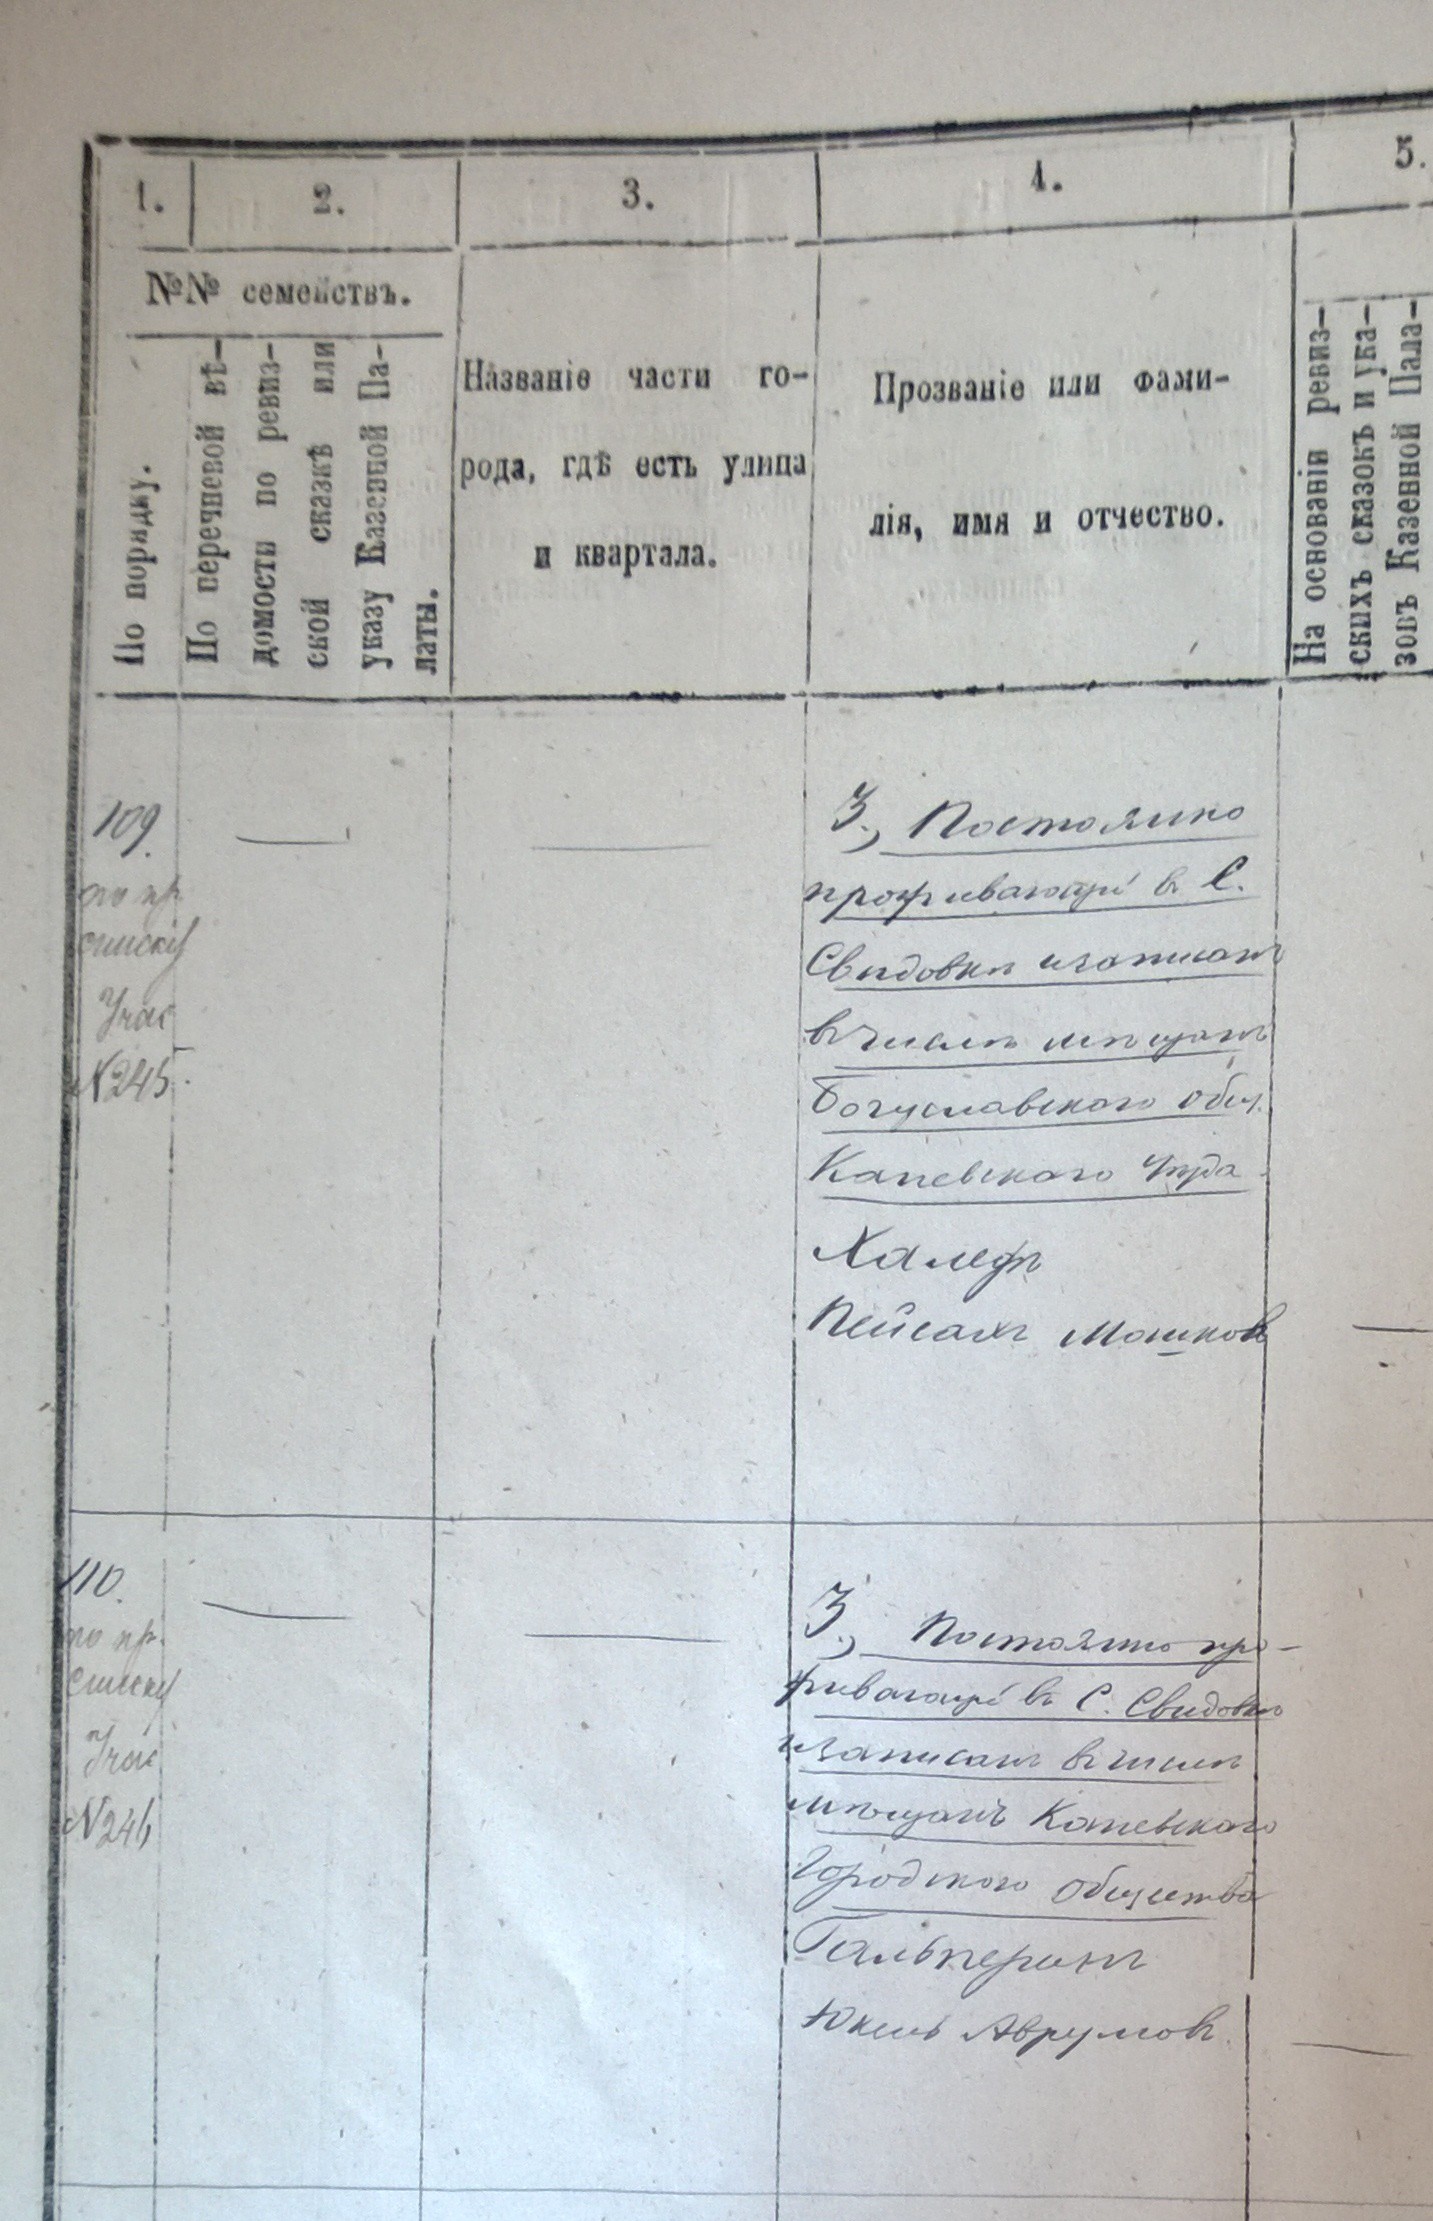 1.
2.
3.
4.
5.
№№ семействъ.
По порядку.
По перечневой вѣ-
домости по ревиз-
ской сказкѣ или
указу Казенной Па-
латы.
Названіе части го-
рода, гдѣ есть улица
и квартала.
Прозваніе или фами-
лія, имя и отчество.
На основаніи ревиз-
скихъ сказокъ и ука-
зовъ Казенной Пала-
109.
по пр.
списку
Учас
№245.
3., Постоянно
проживающій въ С.
Свидовкѣ и записанъ
въ числѣ мѣщанъ
Богуславского общ.
Каневского Уѣзда.
Халефъ
Пейсахъ Мошковъ
110.
по пр.
списку
Учас
№246
3., Постоянно про-
живающій въ С. Свидовкѣ
и записанъ въ числѣ
мѣщанъ Каневского
Городского общества
Гальперинъ
Юкель Аврумовъ.